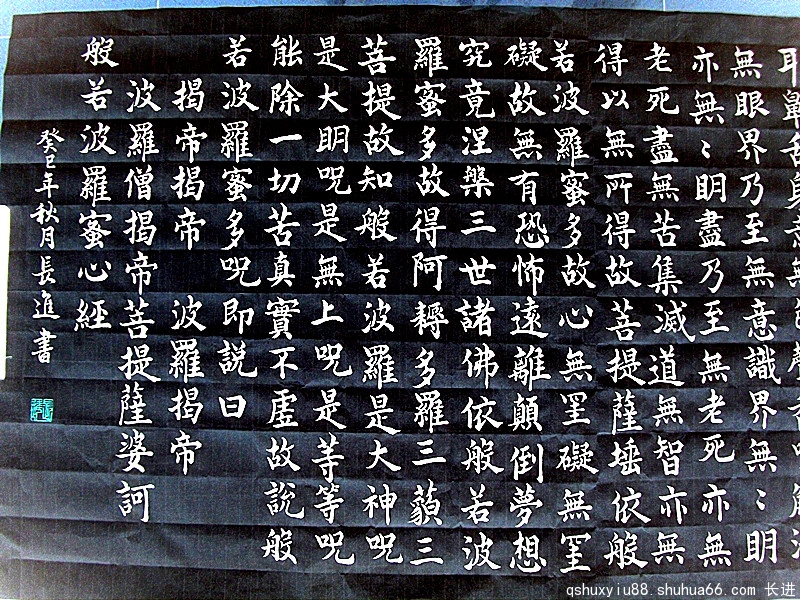 耳鼻舌身意無
無眼界乃至無意識界無〻明
亦無〻明盡乃至無老死亦無
老死盡無苦集滅道無智亦無
得以無所得故菩提薩埵依般
若波羅蜜多故心無罣礙無罣
礙故無有恐怖遠離顛倒夢想
究竟涅槃三世諸佛依般若波
羅蜜多故得阿耨多羅三藐三
菩提故知般若波羅是大神呪
是大明呪是無上呪是等等呪
能除一切苦真實不虛故說般
若波羅蜜多呪即說曰
揭帝揭帝 波羅揭帝
波羅僧揭帝菩提薩婆訶
般若波羅蜜心經
癸巳年秋月長進書
qshuxyiu88.shuhua66.com 长进